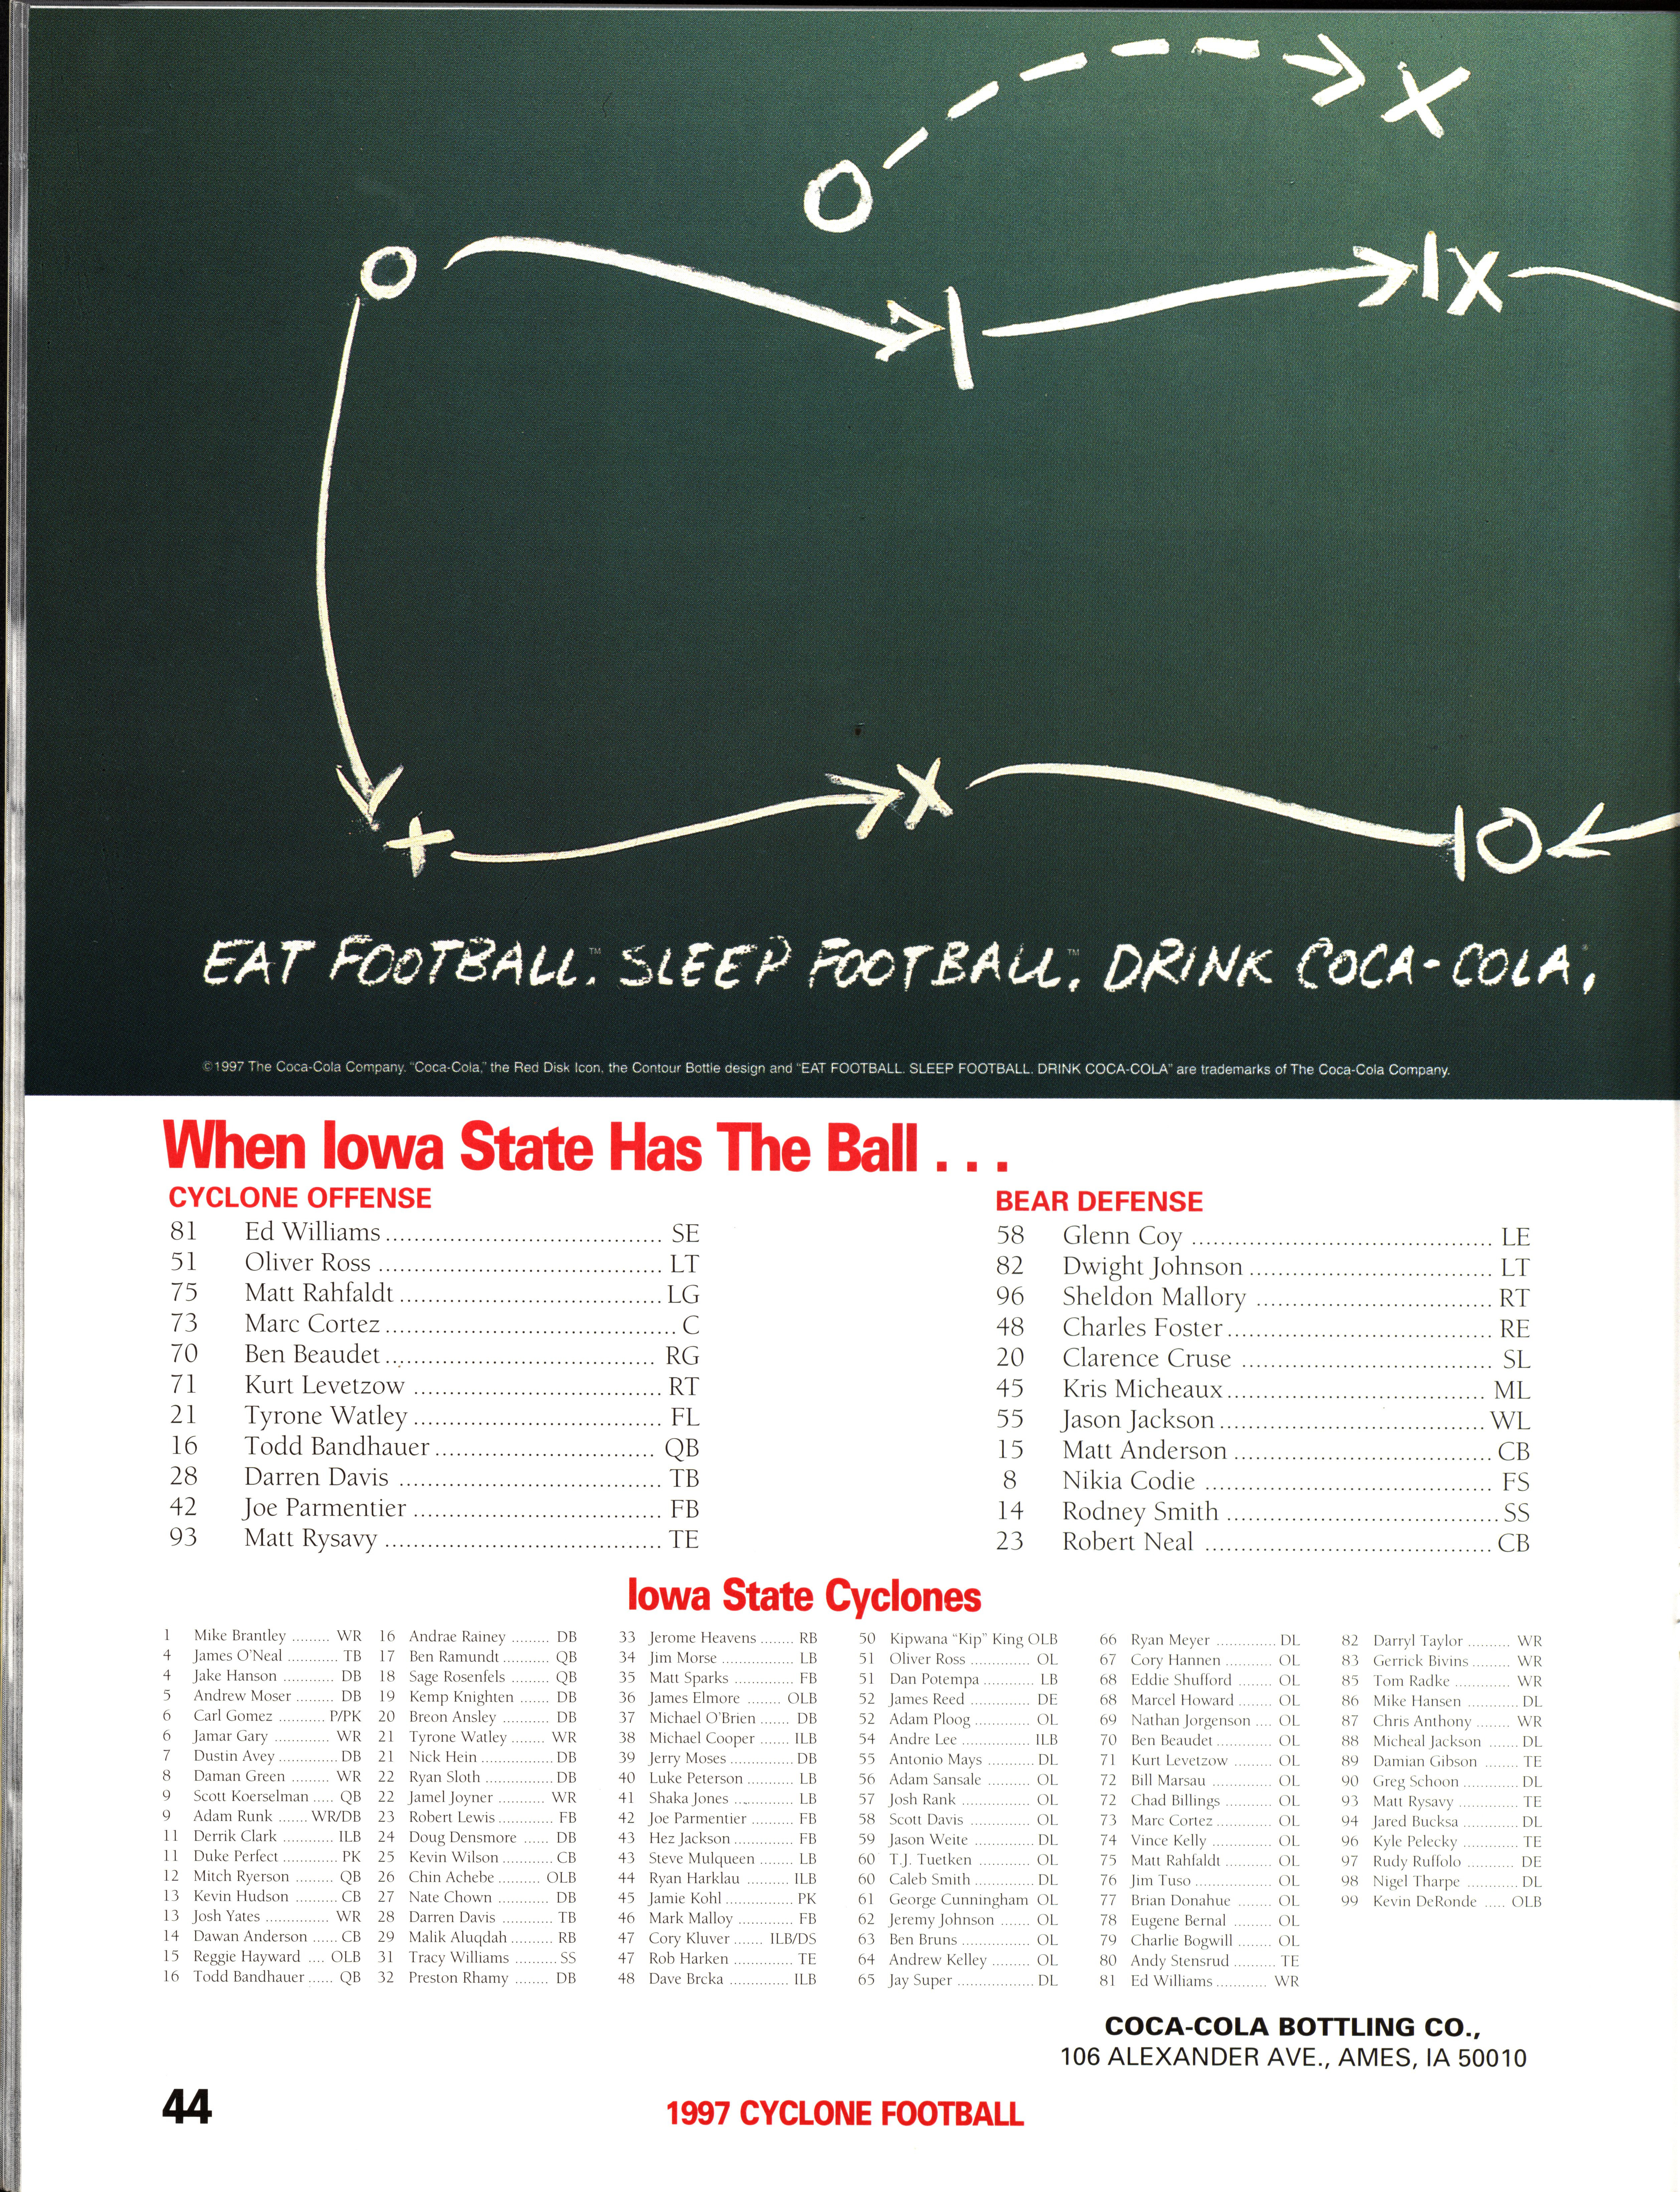 EAT FOOTBALL.™ SLEEP FOOTBALL.™ DRINK COCA-COLA®.
©1997 The Coca-Cola Company. "Coca-Cola," the Red Disk Icon, the Contour Bottle design and "EAT FOOTBALL. SLEEP FOOTBALL. DRINK COCA-COLA" are trademarks of The Coca-Cola Company.
When Iowa State Has The Ball . . .
CYCLONE OFFENSE
81 Ed Williams SE
51 Oliver Ross LT
75 Matt Rahfaldt LG
73 Marc Cortez C
70 Ben Beaudet RG
71 Kurt Levetzow RT
21 Tyrone Watley FL
16 Todd Bandhauer QB
28 Darren Davis TB
42 Joe Parmentier FB
93 Matt Rysavy TE
BEAR DEFENSE
58 Glenn Coy LE
82 Dwight Johnson LT
96 Sheldon Mallory RT
48 Charles Foster RE
20 Clarence Cruse SL
45 Kris Micheaux ML
55 Jason Jackson WL
15 Matt Anderson CB
8 Nikia Codie FS
14 Rodney Smith SS
23 Robert Neal CB
Iowa State Cyclones
1 Mike Brantley WR
4 James O'Neal TB
4 Jake Hanson DB
5 Andrew Moser DB
6 Carl Gomez P/PK
6 Jamar Gary WR
7 Dustin Avey DB
8 Daman Green WR
9 Scott Koerselman QB
9 Adam Runk WR/DB
11 Derrik Clark ILB
11 Duke Perfect PK
12 Mitch Ryerson QB
13 Kevin Hudson CB
13 Josh Yates WR
14 Dawan Anderson CB
15 Reggie Hayward OLB
16 Todd Bandhauer QB
16 Andrae Rainey DB
17 Ben Ramundt QB
18 Sage Rosenfels QB
19 Kemp Knighten DB
20 Breon Ansley DB
21 Tyrone Watley WR
21 Nick Hein DB
22 Ryan Sloth DB
22 Jamel Joyner WR
23 Robert Lewis FB
24 Doug Densmore DB
25 Kevin Wilson CB
26 Chin Achebe OLB
27 Nate Chown DB
28 Darren Davis TB
29 Malik Aluqdah RB
31 Tracy Williams SS
32 Preston Rhamy DB
33 Jerome Heavens RB
34 Jim Morse LB
35 Matt Sparks FB
36 James Elmore OLB
37 Michael O'Brien DB
38 Michael Cooper ILB
39 Jerry Moses DB
40 Luke Peterson LB
41 Shaka Jones LB
42 Joe Parmentier FB
43 Hez Jackson FB
43 Steve Mulqueen LB
44 Ryan Harklau ILB
45 Jamie Kohl PK
46 Mark Malloy FB
47 Cory Kluver ILB/DS
47 Rob Harken TE
48 Dave Brcka ILB
50 Kipwana "Kip" King OLB
51 Oliver Ross OL
51 Dan Potempa LB
52 James Reed DE
52 Adam Ploog OL
54 Andre Lee ILB
55 Antonio Mays DL
56 Adam Sansale OL
57 Josh Rank OL
58 Scott Davis OL
59 Jason Weite DL
60 T.J. Tuetken OL
60 Caleb Smith DL
61 George Cunningham OL
62 Jeremy Johnson OL
63 Ben Bruns OL
64 Andrew Kelley OL
65 Jay Super DL
66 Ryan Meyer DL
67 Cory Hannen OL
68 Eddie Shufford OL
68 Marcel Howard OL
69 Nathan Jorgenson OL
70 Ben Beaudet OL
71 Kurt Levetzow OL
72 Bill Marsau OL
72 Chad Billings OL
73 Marc Cortez OL
74 Vince Kelly OL
75 Matt Rahfaldt OL
76 Jim Tuso OL
77 Brian Donahue OL
78 Eugene Bernal OL
79 Charlie Bogwill OL
80 Andy Stensrud TE
81 Ed Williams WR
82 Darryl Taylor WR
83 Gerrick Bivins WR
85 Tom Radke WR
86 Mike Hansen DL
87 Chris Anthony WR
88 Micheal Jackson DL
89 Damian Gibson TE
90 Greg Schoon DL
93 Matt Rysavy TE
94 Jared Bucksa DL
96 Kyle Pelecky TE
97 Rudy Ruffolo DE
98 Nigel Tharpe DL
99 Kevin DeRonde OLB
COCA-COLA BOTTLING CO.,
106 ALEXANDER AVE., AMES, IA 50010
44
1997 CYCLONE FOOTBALL